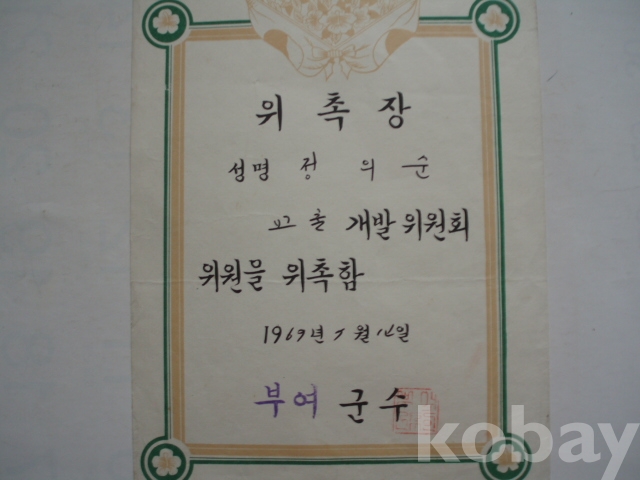 위 촉 장
성명 정 의 순
교촌 개발 위원회
위원을 위촉함
1969년 7월 12일
부여 군 수
kobay